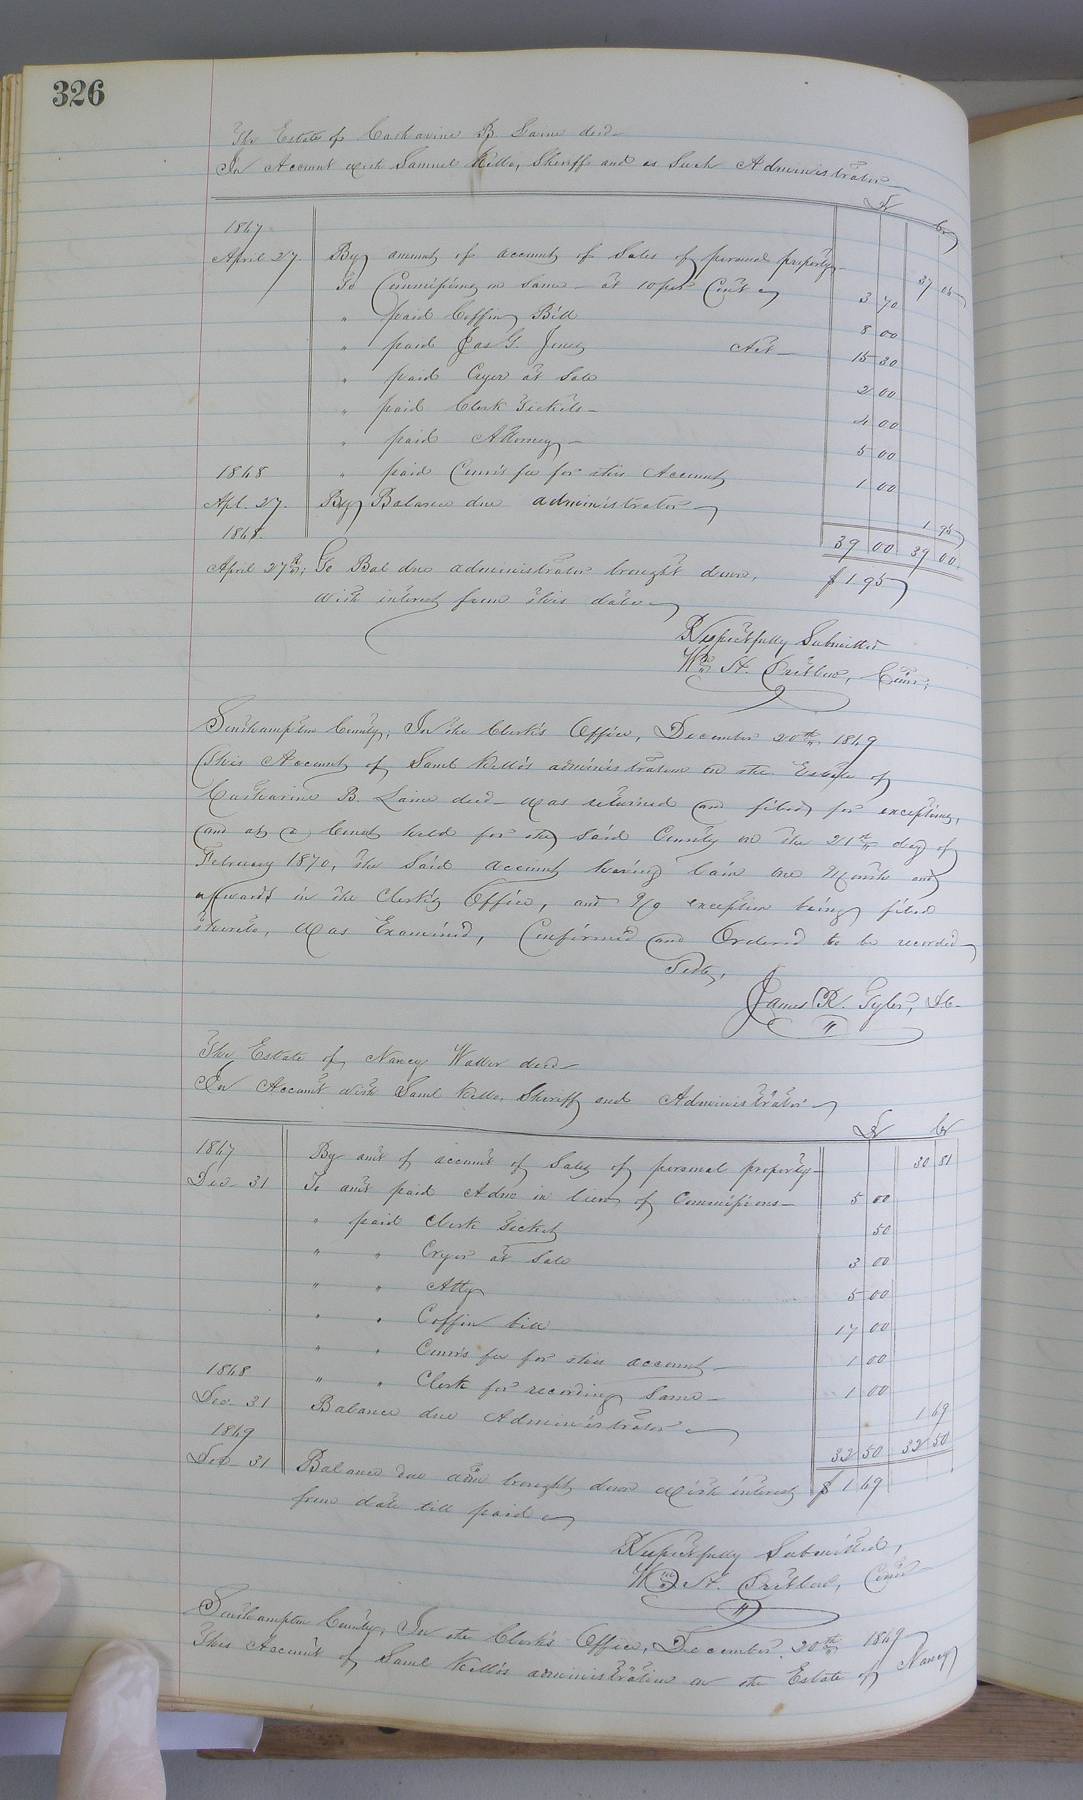 326
The Estate of Catharine B. Laine decd
In Account with Samuel Kello, Sheriff and as Such Administrator
Dr Cr
1867
April 27. By amount of account of Sales of personal property 37 05
To Commissions on Same at 10 per Cent 3 70
" paid Coffin Bill 8 00
" paid Jas G. Jones Act 15 30
" paid Cryer at Sale 2 00
" paid Clerk Tickets 4 00
" paid Attorney 5 00
1868 " paid Comr's fee for this Account 1 00
Apl. 27. By Balance due administrator 1 95
1868. 39 00 39 00
April 27th; To Bal due administrator brought down, $1 95
with interest from this date
Respectfully Submitted
Wm H. Pretlow, Comr;
Southampton County, In the Clerk's Office, December 20th 1869
This Account of Saml Kello's administration on the Estate of
Catharine B. Laine decd was returned and filed for exceptions,
and at a Court held for the Said County on the 21st day of
February 1870, the Said account having lain one Month and
upwards in the Clerk's Office, and No exception being filed
thereto, was Examined, Confirmed and Ordered to be recorded
Teste,
James R. Tyler, D.C.
The Estate of Nancy Waller decd
In Account with Saml Kello, Sheriff and Administrator
Dr Cr
1867 By amt of account of Sales of personal property 30 81
Dec 31 To amt paid Admr in lieu of Commissions 5 00
" paid Clerk Ticket 50
" " Cryer at Sale 3 00
" " Atty 5 00
" " Coffin bill 17 00
" " Comr's fee for this account 1 00
1868 " " Clerk for recording Same 1 00
Dec. 31 Balance due Administrator 1 69
1869 32 50 32 50
Dec 31 Balance due adm brought down with interest $1 69
from date till paid
Respectfully Submitted,
Wm H. Pretlow, Comr
Southampton County, In the Clerk's Office, December 20th 1869
This Account of Saml Kello's administration on the Estate of Nancy